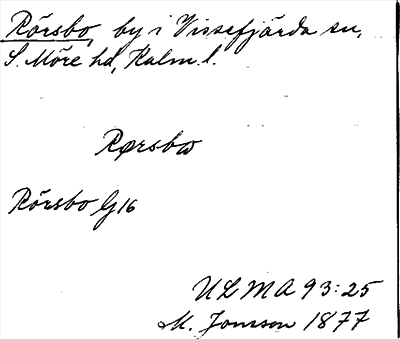 Rörsbo, by i Vissefjärda sn,
S. Möre hd, Kalm. l.
Rørsbω
Rörsbo G16
ULMA 93:25
M. Jonsson 1877